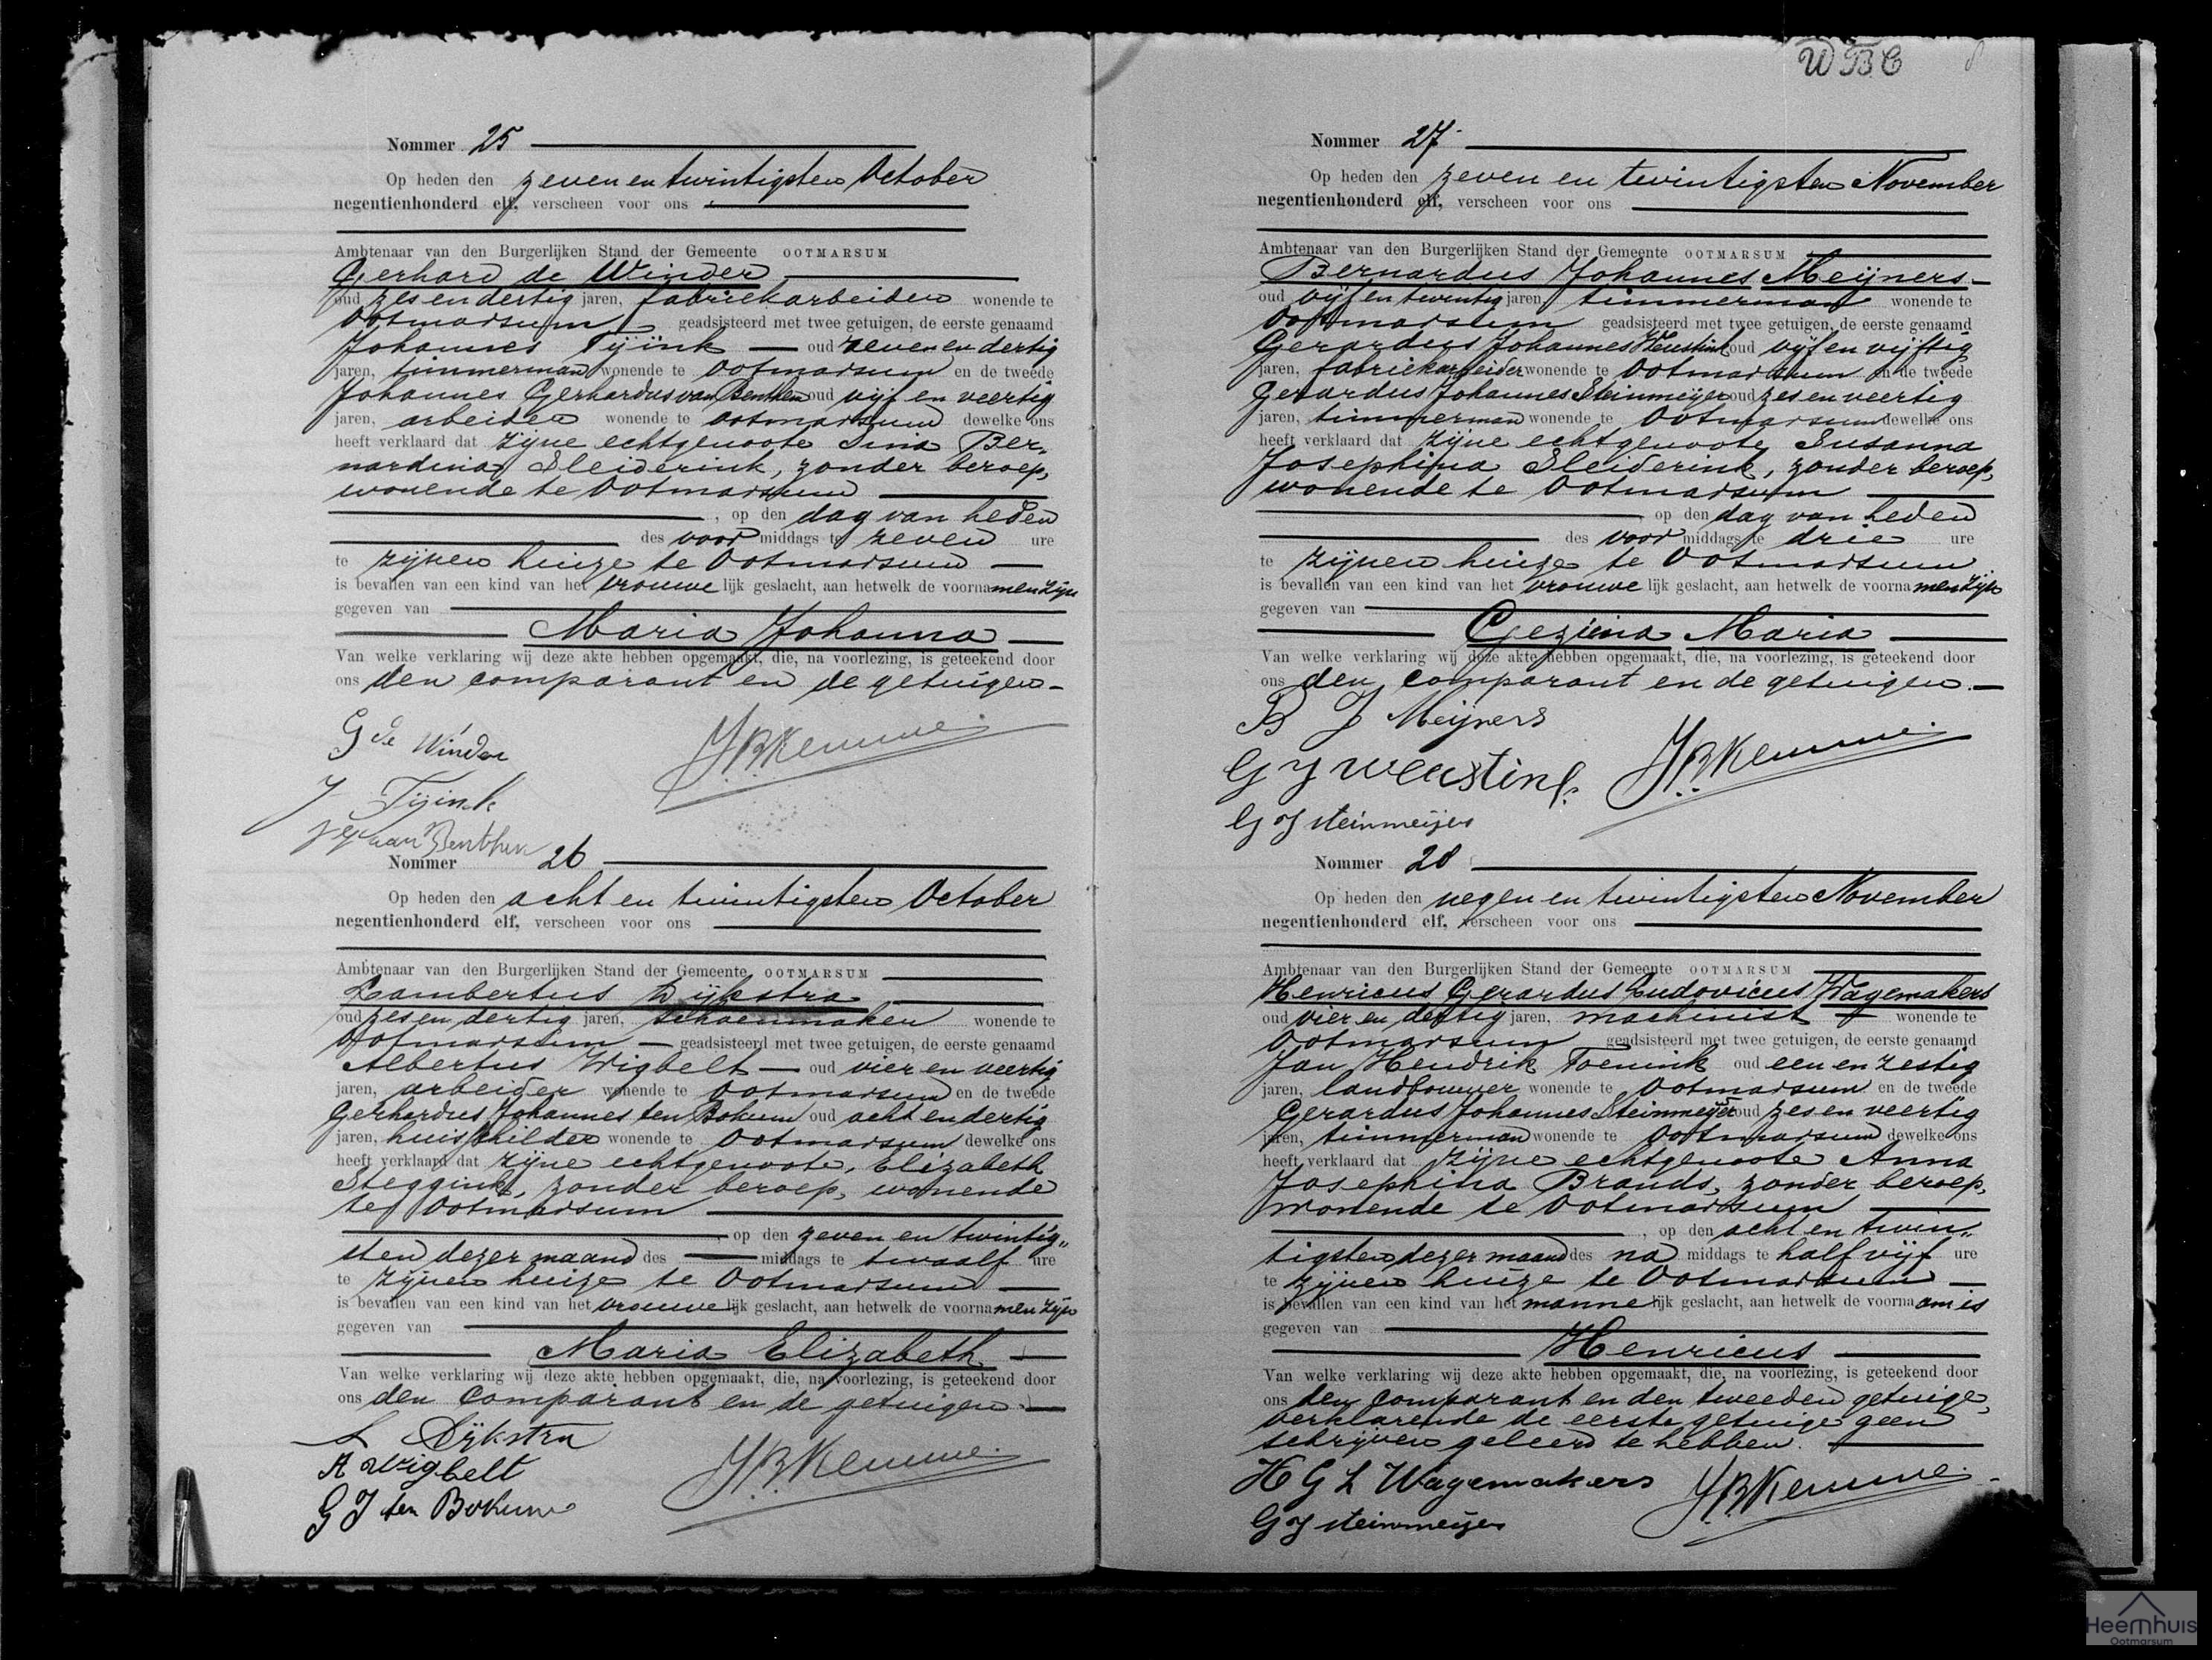 Nommer 25
Op heden den zeven en twintigsten October
negentienhonderd elf, verscheen voor ons
Ambtenaar van den Burgerlijken Stand der Gemeente OOTMARSUM
Gerhard de Winder
oud zes en dertig jaren, fabriekarbeider wonende te
Ootmarsum geadsisteerd met twee getuigen, de eerste genaamd
Johannes Tijink oud zeven en dertig
jaren, timmerman wonende te Ootmarsum en de tweede
Johannes Gerhardus van Benthem oud vijf en veertig
jaren, arbeider wonende te Ootmarsum dewelke ons
heeft verklaard dat zijne echtgenoote Sina Ber-
nardina Sleiderink, zonder beroep,
wonende te Ootmarsum
, op den dag van heden
des voor middags te zeven ure
te zijnen huize te Ootmarsum
is bevallen van een kind van het vrouwe lijk geslacht, aan hetwelk de voornamen zijn
gegeven van
Maria Johanna
Van welke verklaring wij deze akte hebben opgemaakt, die, na voorlezing, is geteekend door
ons den comparant en de getuigen.
G de Winder
J Tijink
J G van Benthem
JBKemme
Nommer 26
Op heden den acht en twintigsten October
negentienhonderd elf, verscheen voor ons
Ambtenaar van den Burgerlijken Stand der Gemeente OOTMARSUM
Lambertus Dijkstra
oud zes en dertig jaren, schoenmaker wonende te
Ootmarsum geadsisteerd met twee getuigen, de eerste genaamd
Albertus Wigbelt oud vier en veertig
jaren, arbeider wonende te Ootmarsum en de tweede
Gerhardus Johannes ten Bokum oud acht en dertig
jaren, huisschilder wonende te Ootmarsum dewelke ons
heeft verklaard dat zijne echtgenoote, Elizabeth
Steggink, zonder beroep, wonende
te Ootmarsum
, op den zeven en twintig"
sten dezer maand des middags te twaalf ure
te zijnen huize te Ootmarsum
is bevallen van een kind van het vrouwe lijk geslacht, aan hetwelk de voornamen zijn
gegeven van
Maria Elizabeth
Van welke verklaring wij deze akte hebben opgemaakt, die, na voorlezing, is geteekend door
ons den comparant en de getuigen.
L Dijkstra
A Wigbelt
G J ten Bokum
JBKemme
WBC
Nommer 27
Op heden den zeven en twintigsten November
negentienhonderd elf, verscheen voor ons
Ambtenaar van den Burgerlijken Stand der Gemeente OOTMARSUM
Bernardus Johannes Meijners
oud vijf en twintig jaren, timmerman wonende te
Ootmarsum geadsisteerd met twee getuigen, de eerste genaamd
Gerardus Johannes Weustink oud vijf en vijftig
jaren, fabriekarbeider wonende te Ootmarsum en de tweede
Gerardus Johannes Steinmeijer oud zes en veertig
jaren, timmerman wonende te Ootmarsum dewelke ons
heeft verklaard dat zijne echtgenoote Susanna
Josephina Sleiderink, zonder beroep,
wonende te Ootmarsum
op den dag van heden
des voor middags te drie ure
te zijnen huize te Ootmarsum
is bevallen van een kind van het vrouwe lijk geslacht, aan hetwelk de voornamen zijn
gegeven van
Gezina Maria
Van welke verklaring wij deze akte hebben opgemaakt, die, na voorlezing, is geteekend door
ons den comparant en de getuigen.
B J Meijners
G J Weustink
G J Steinmeijer
JBKemme
Nommer 28
Op heden den negen en twintigsten November
negentienhonderd elf, verscheen voor ons
Ambtenaar van den Burgerlijken Stand der Gemeente OOTMARSUM
Henricus Gerardus Ludovicus Wagemakers
oud vier en dertig jaren, machinist wonende te
Ootmarsum geadsisteerd met twee getuigen, de eerste genaamd
Jan Hendrik Toenink oud een en zestig
jaren, landbouwer wonende te Ootmarsum en de tweede
Gerardus Johannes Steinmeijer oud zes en veertig
jaren, timmerman wonende te Ootmarsum dewelke ons
heeft verklaard dat zijne echtgenoote Anna
Josephina Brands, zonder beroep,
wonende te Ootmarsum
, op den acht en twin"
tigsten dezer maand des na middags te half vijf ure
te zijnen huize te Ootmarsum
is bevallen van een kind van het manne lijk geslacht, aan hetwelk de voornaam is
gegeven van
Henricus
Van welke verklaring wij deze akte hebben opgemaakt, die, na voorlezing, is geteekend door
ons den comparant en den tweeden getuige,
verklarende de eerste getuige geen
schrijven geleerd te hebben.
H G L Wagemakers
G J Steinmeijer
JBKemme
Heemhuis
Ootmarsum